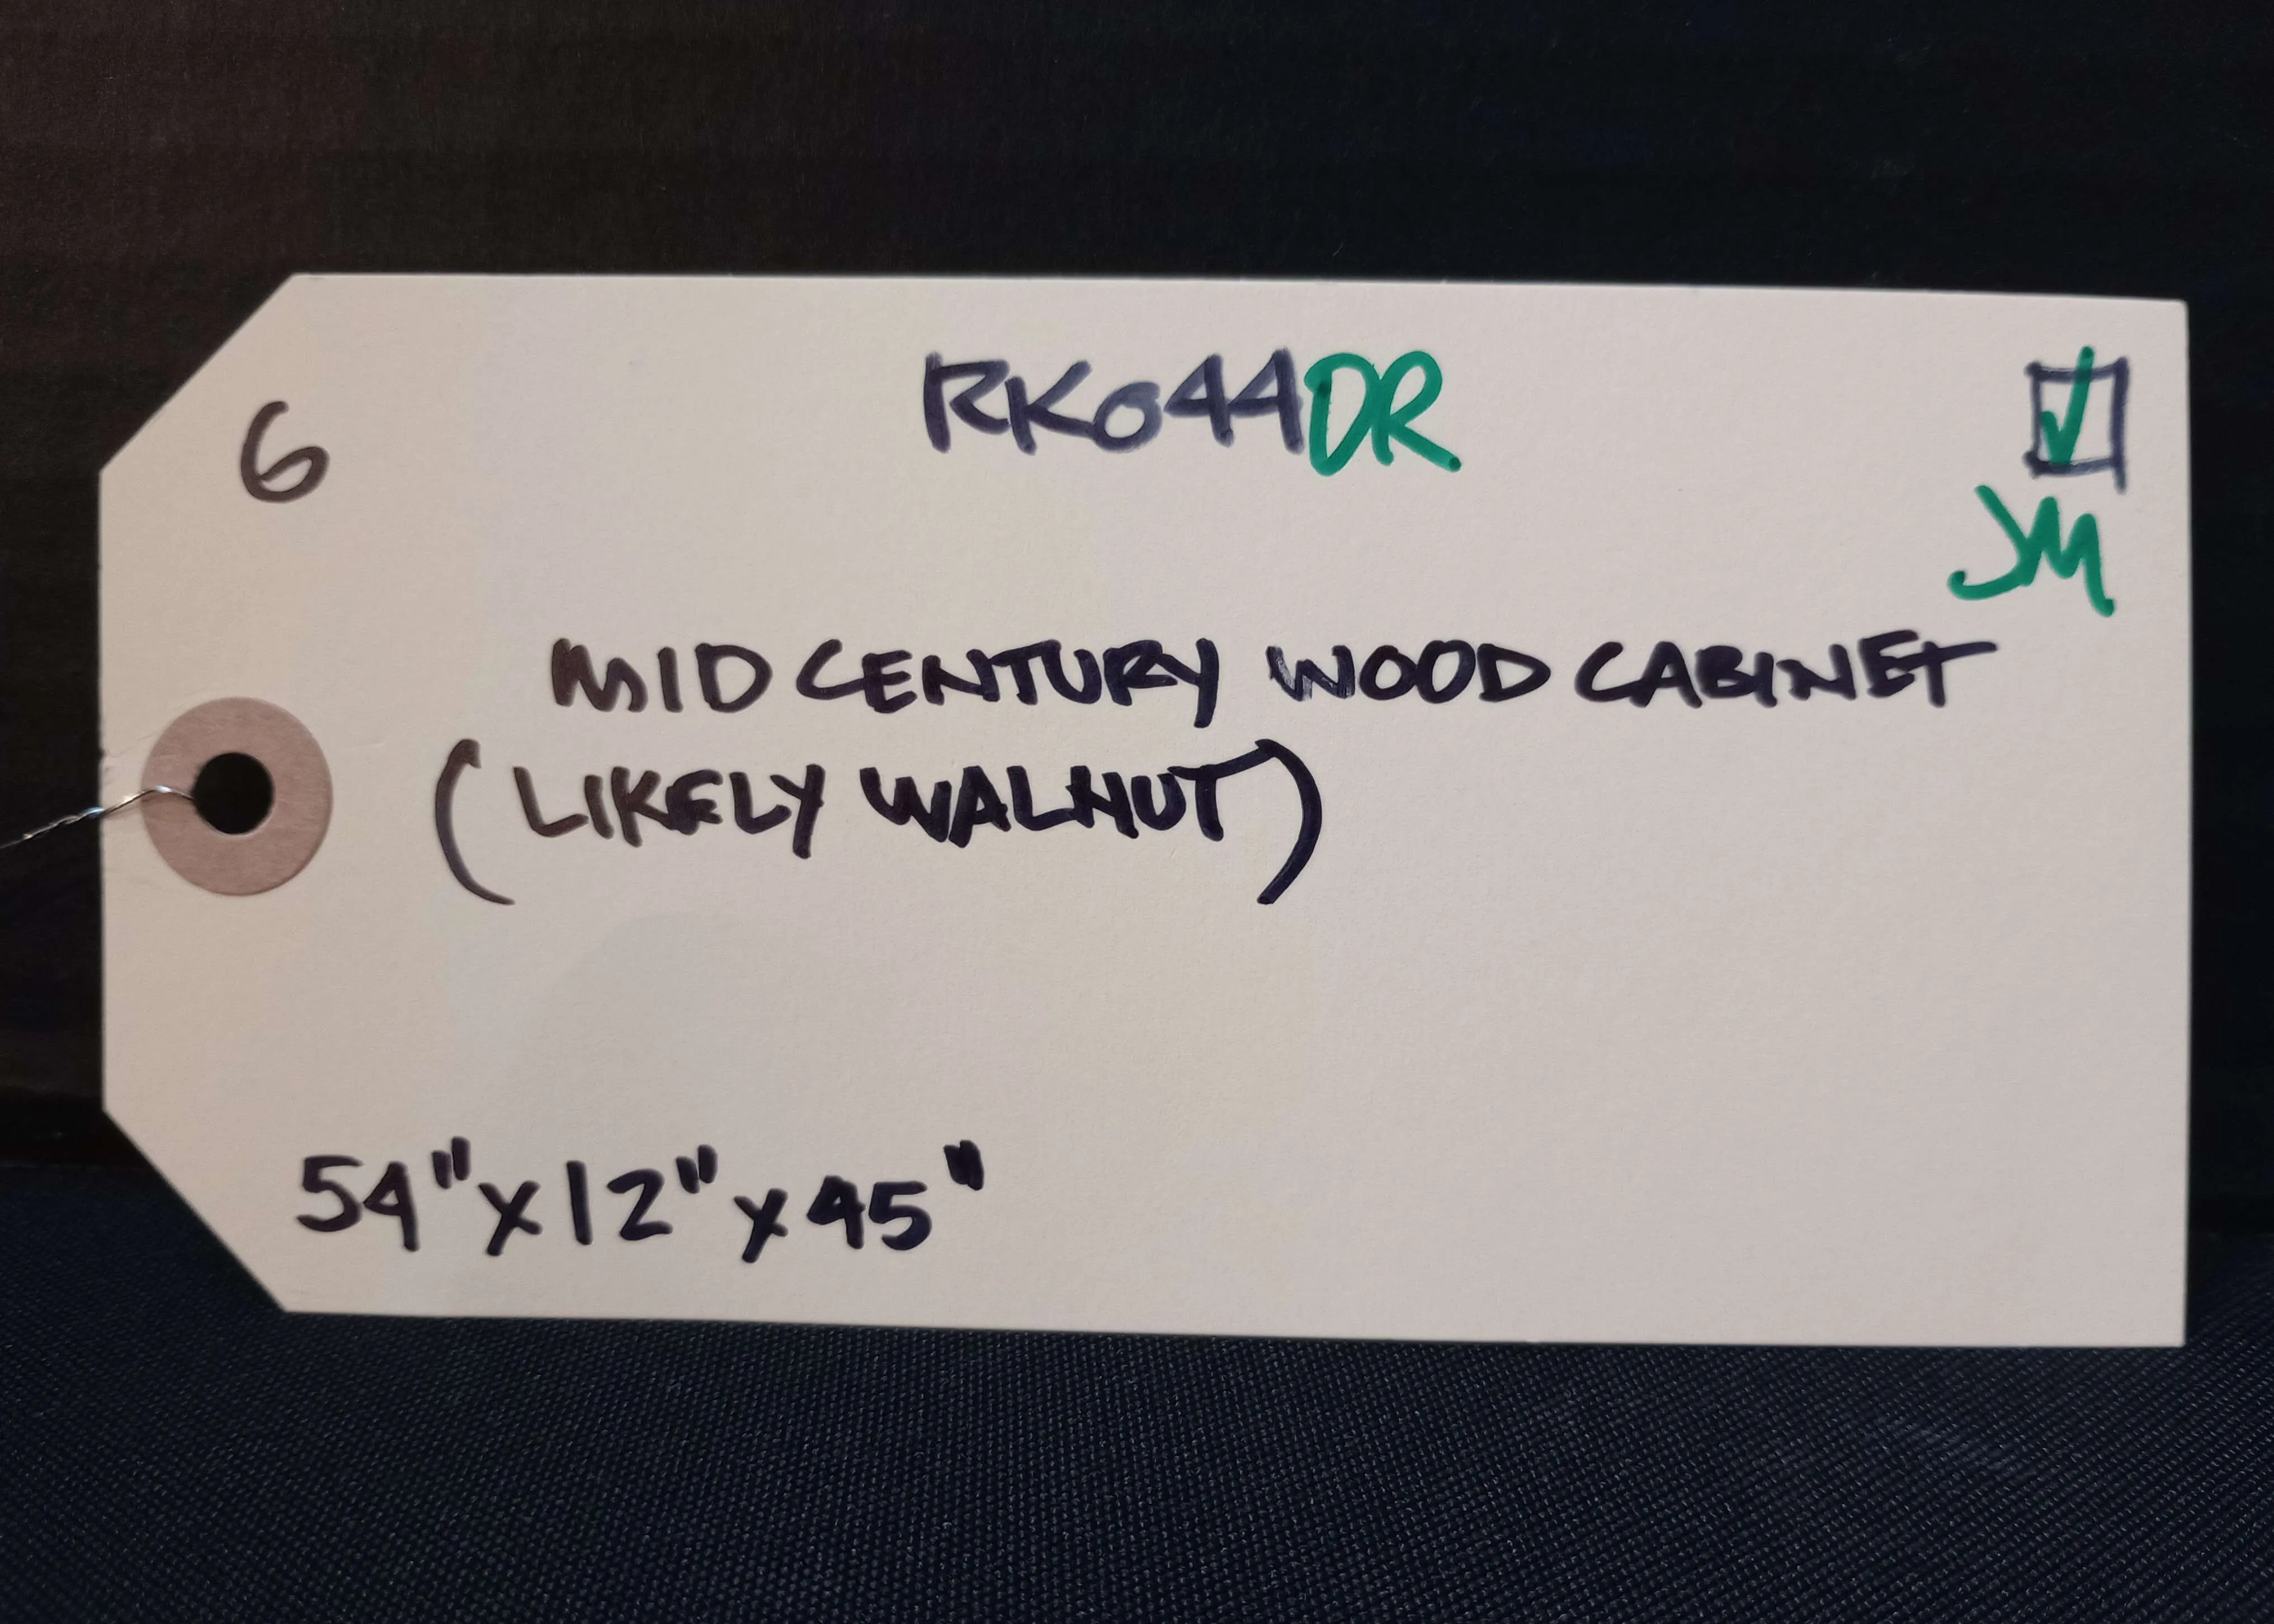 6 RK044DR ☑
JM
MID CENTURY WOOD CABINET
(LIKELY WALNUT)
54"x12"x45"